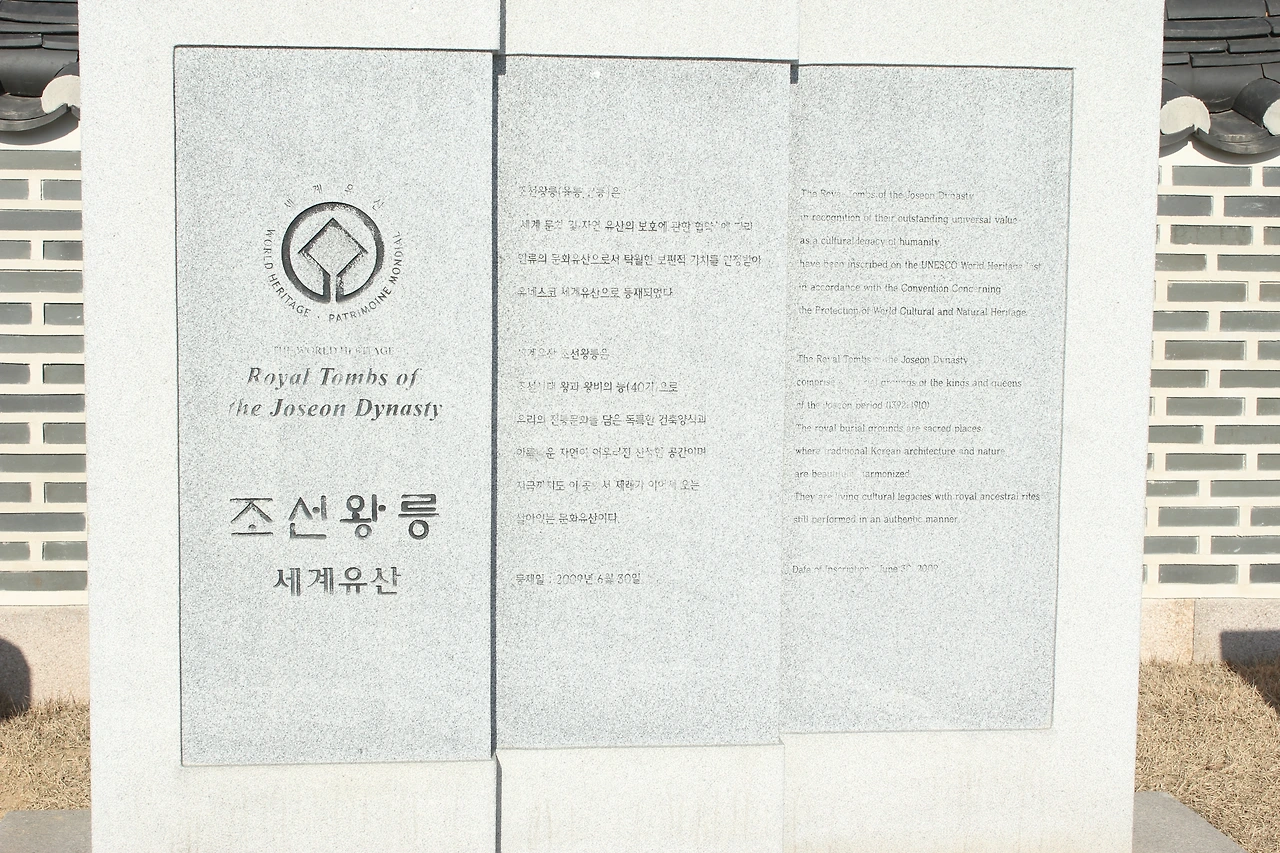 세계유산
WORLD HERITAGE · PATRIMOINE MONDIAL
THE WORLD HERITAGE
Royal Tombs of
the Joseon Dynasty
조선왕릉
세계유산
조선왕릉(유릉)은
세계 문화 및 자연 유산의 보호에 관한 협약에 따라
인류의 문화유산으로서 탁월한 보편적 가치를 인정받아
유네스코 세계유산으로 등재되었다.
세계유산 조선왕릉은
조선시대 왕과 왕비의 능(40기)으로
우리의 전통문화를 담은 독특한 건축양식과
아름다운 자연이 어우러진 신성한 공간이며
지금까지도 이 곳에서 제례가 이어져 오는
살아있는 문화유산이다.
등재일 : 2009년 6월 30일
The Royal Tombs of the Joseon Dynasty
in recognition of their outstanding universal value
as a cultural legacy of humanity,
have been inscribed on the UNESCO World Heritage List
in accordance with the Convention Concerning
the Protection of World Cultural and Natural Heritage.
The Royal Tombs of the Joseon Dynasty
comprise burial grounds of the kings and queens
of the Joseon period (1392-1910)
The royal burial grounds are sacred places
where traditional Korean architecture and nature
are beautifully harmonized.
They are living cultural legacies with royal ancestral rites
still performed in an authentic manner.
Date of Inscription : June 30, 2009